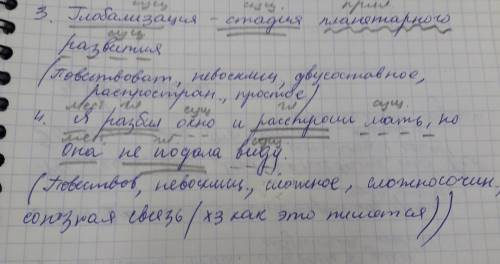 сущ. сущ. прил.
3. Глобализация - стадия планетарного
сущ.
развития
(Повествоват, невосклиц, двусоставное,
распростран., простое)
мест гл сущ. гл сущ.
4. Я разбил окно и расстроил мать, но
мест. гл сущ.
она не подала виду.
(Повествов, невосклиц., сложное, сложносочин,
союзная связь (хз как это пишется))